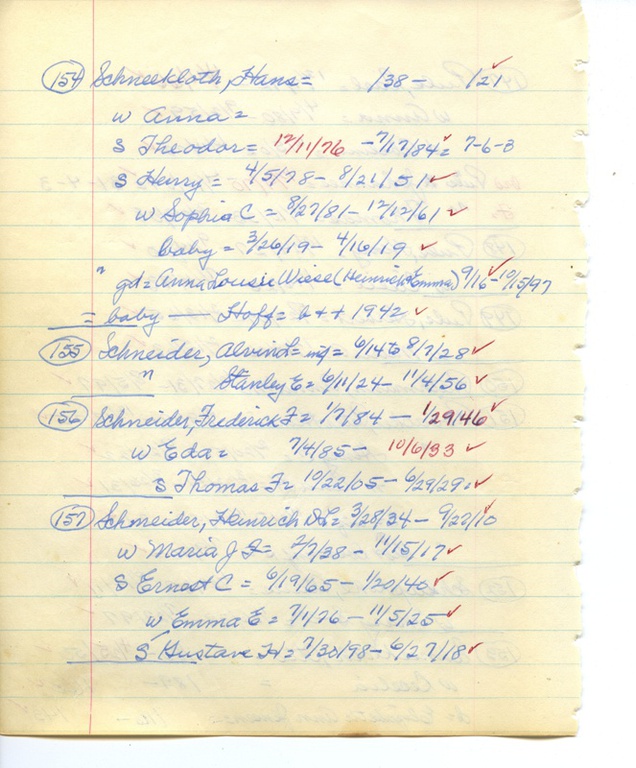 (154) Schneekloth, Hans = /38 - /21 ✓
w Anna =
S Theodor = 12/11/76 - 7/17/84 ✓ = 7-6-3
S Henry = 4/5/78 - 8/21/51 ✓
w Sophia C = 8/27/81 - 12/12/61 ✓
baby = 3/26/19 - 4/16/19 ✓
" gd = Anna Lousie Wiese (Heinrich & Emma) 9/16 - 10/15/97 ✓
= baby — Hoff = b + + 1942 ✓
(155) Schneider, Alvin L = inf = 6/14 to 8/7/28 ✓
" Stanley E = 6/11/24 - 11/4/56 ✓
(156) Schneider, Frederick F = 1/7/84 - 1/29/46 ✓
w Eda = 7/4/85 - 10/6/33 ✓
S Thomas F = 10/22/05 - 6/29/29 ✓
(157) Schmeider, Heinrich = 3/28/34 - 9/22/10 ✓
w Maria J F = 2/7/38 - 11/15/17 ✓
S Ernest C = 6/19/65 - 1/20/40 ✓
w Emma E = 7/1/76 - 11/5/25 ✓
S Gustave H = 7/30/98 - 6/27/18 ✓